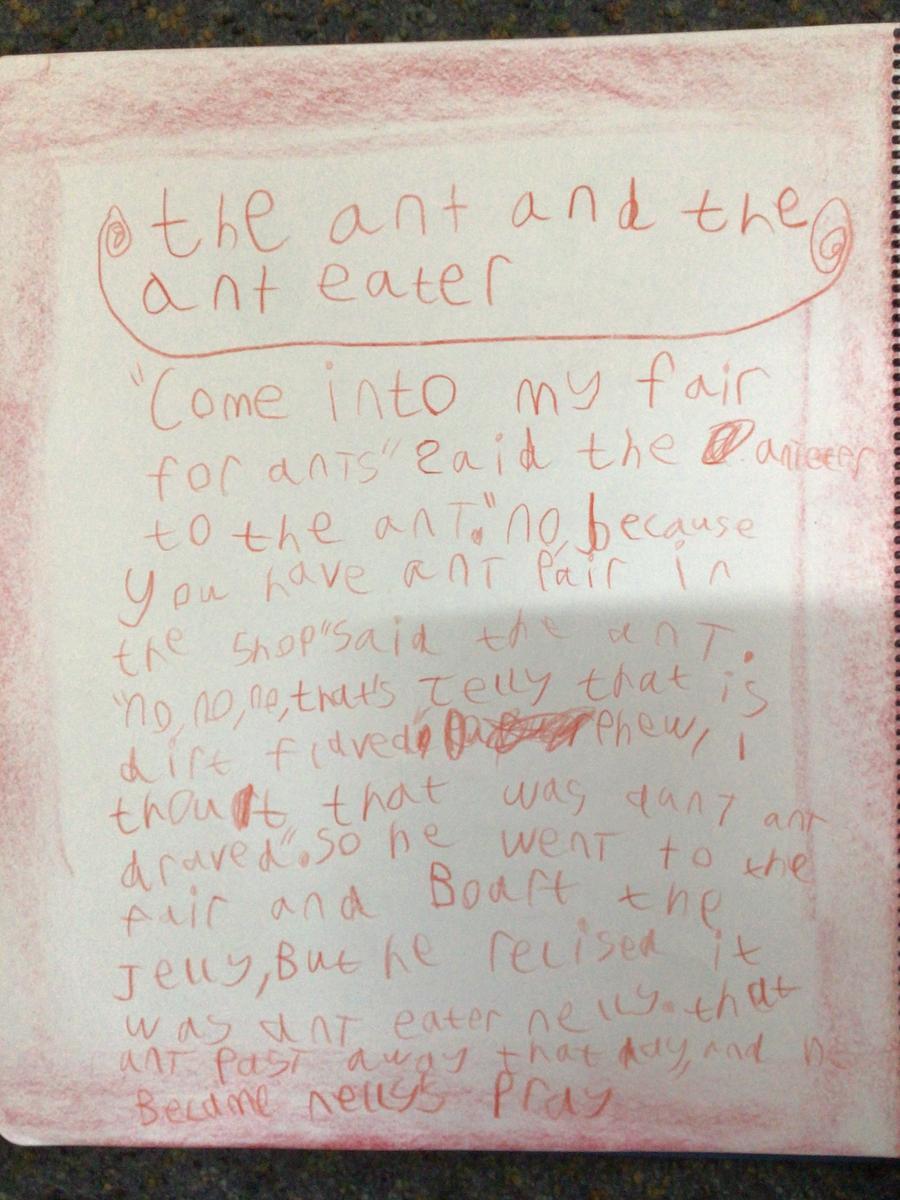 the ant and the
ant eater
"Come into my fair
for ants" said the anteeter
to the ant. "no, because
you have ant Pair in
the shop" said the ant.
"no, no, no, that's Jelly that is
dirt flaved" "Phew, i
thout that was ant
draved". So he went to the
fair and Boart the
Jelly, But he relised it
was ant eater nelly. that
ant Past away that day, and he
Became nelly's Pray